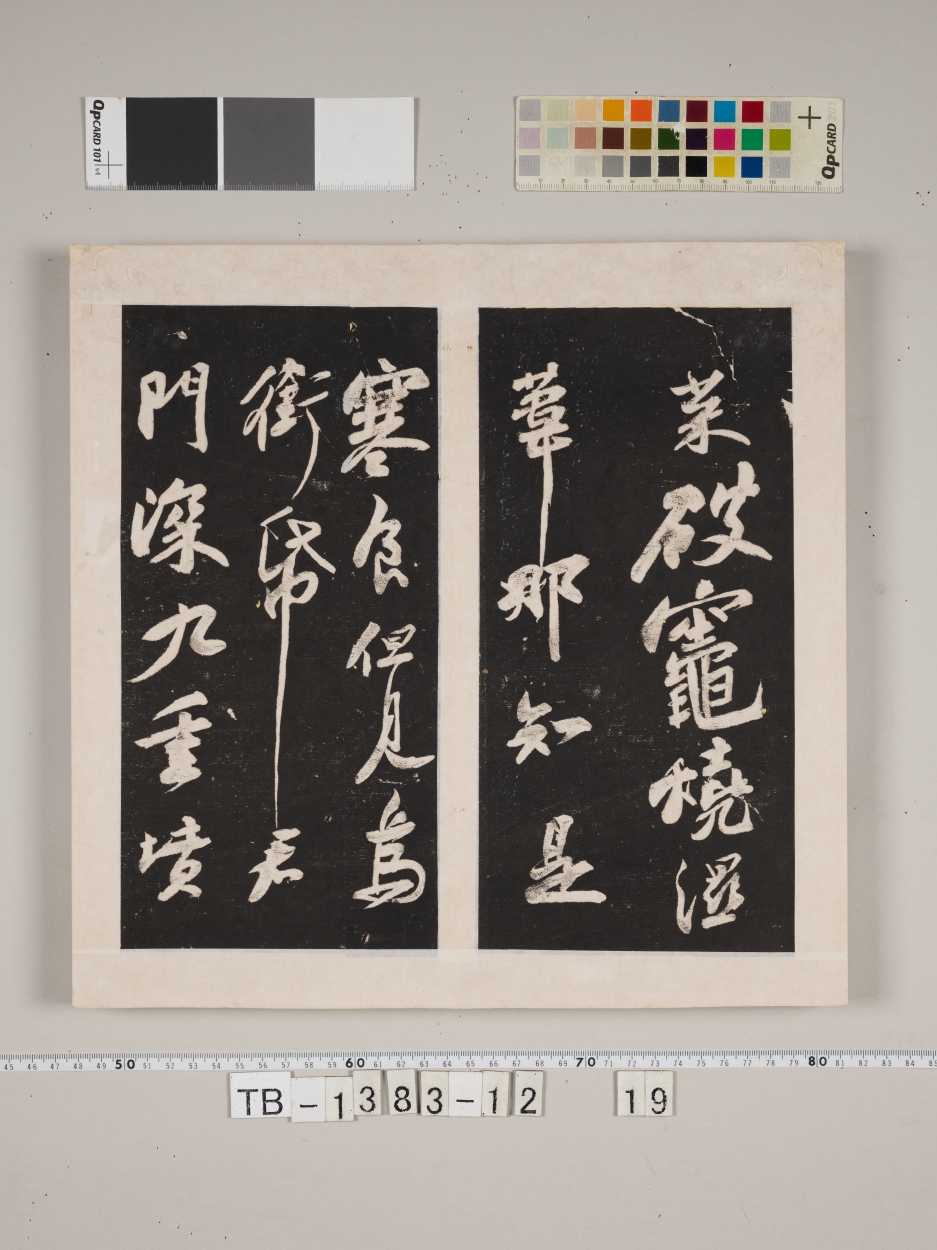 菜破竈燒濕
葦那知是
寒食但見烏
銜帋君
門深九重墳
QpCARD 101 v4
QpCARD 201
10 20 30 40 50 60 70 80 90 100 110 130
45 46 47 48 49 50 51 52 53 54 55 56 57 58 59 60 61 62 63 64 65 66 67 68 69 70 71 72 73 74 75 76 77 78 79 80 81 82 83 84 85
TB-1383-12 19